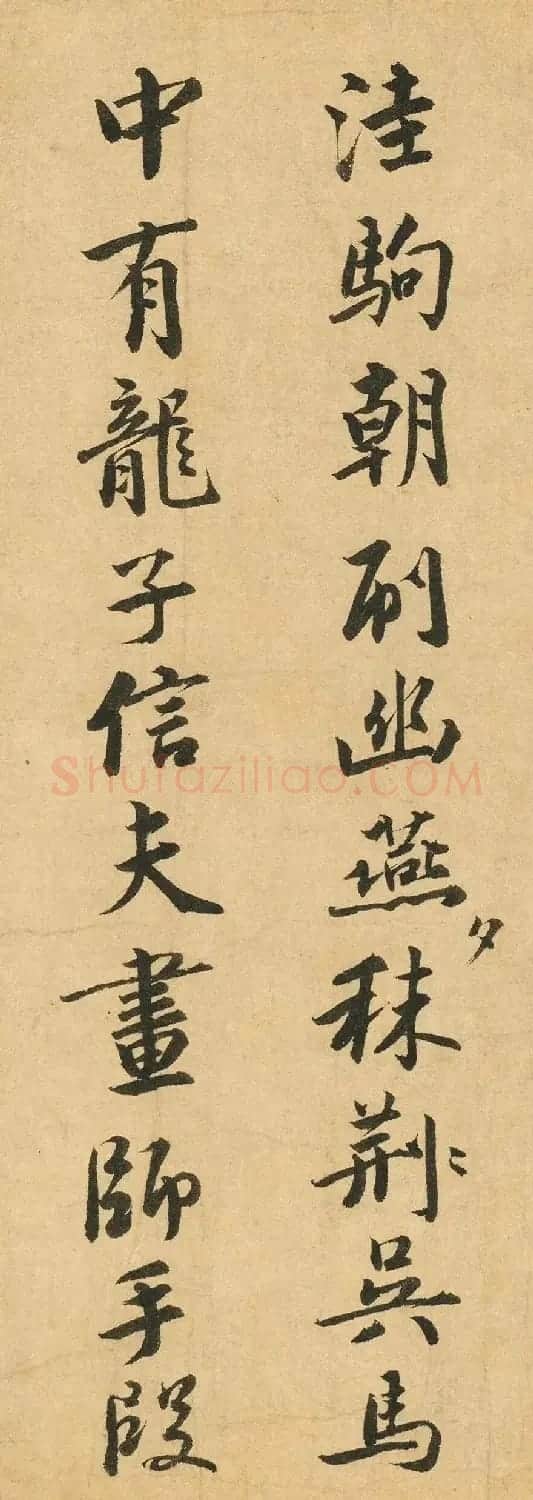 渥駒朝刷幽燕夕秣荆〻吴馬
中有龍子信夫畫師手段
Shufaziliao.COM